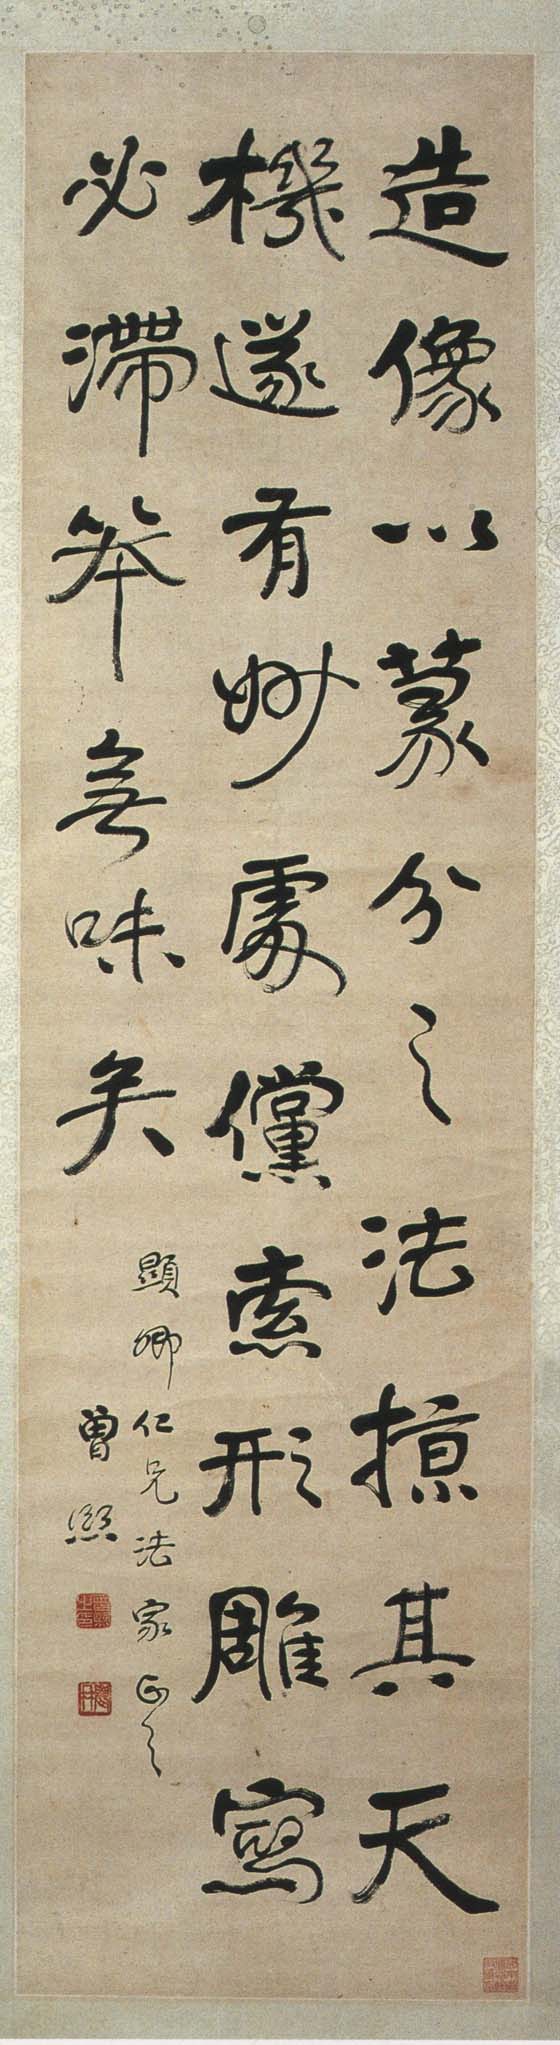 造像以篆分之法掠其天
機遂有妙處儻索形雕寫
必滯笨無味矣
顯卿仁兄法家正之
曾熙